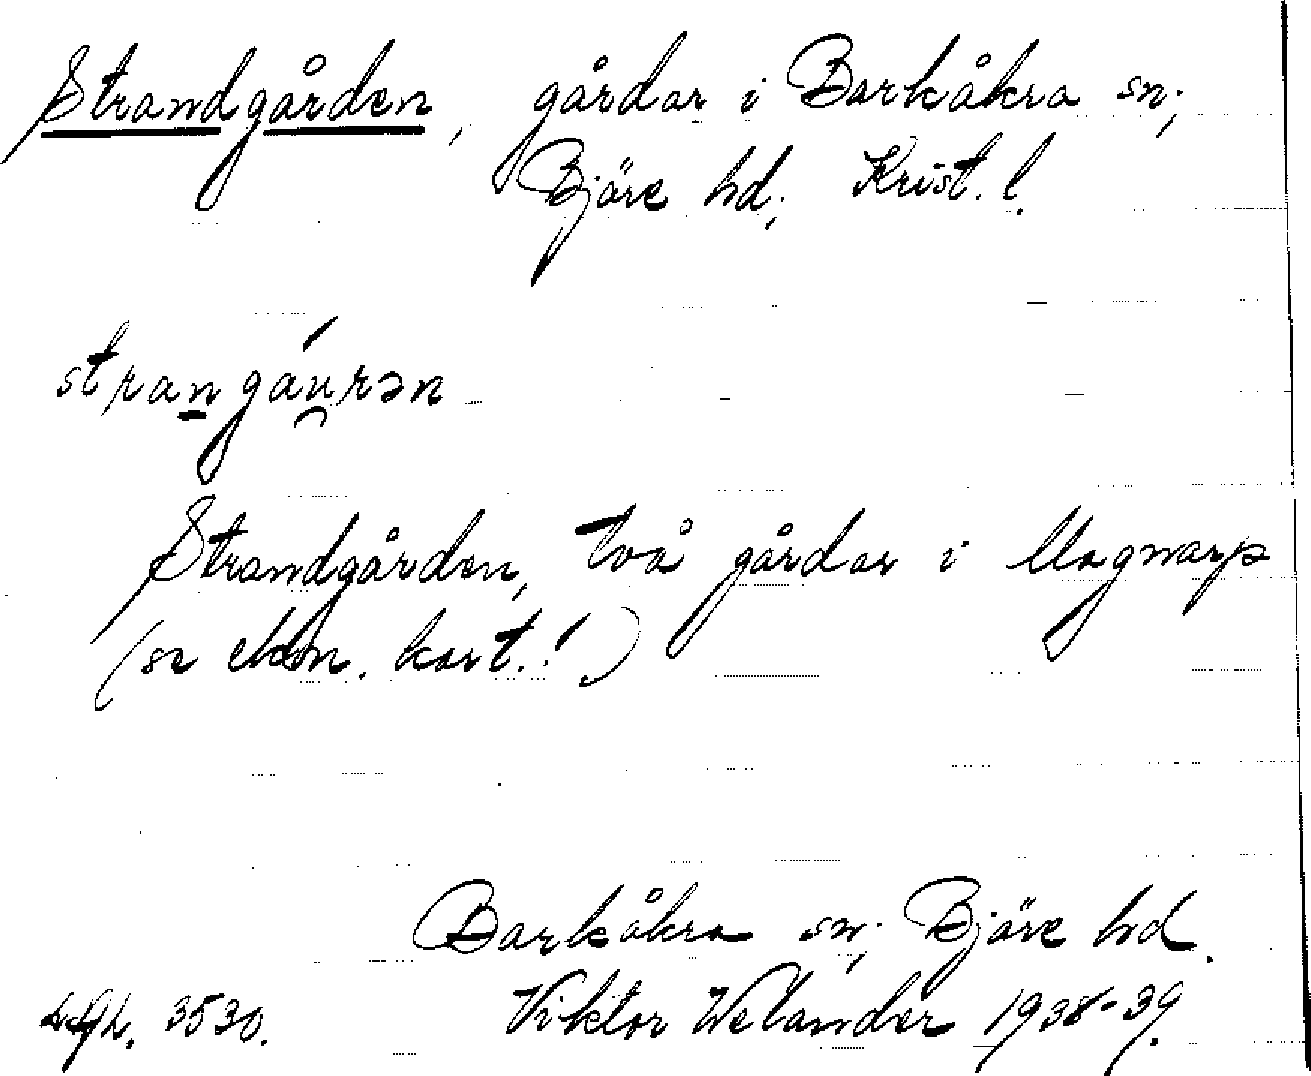 Strandgården, gårdar i Barkåkra sn;
Bjäre hd; Krist. l.
strangáu̯rən
Strandgården, två gårdar i Magnarp
(se ekon. kart.!)
Barkåkra sn; Bjäre hd.
3530. Viktor Welander 1938-39.